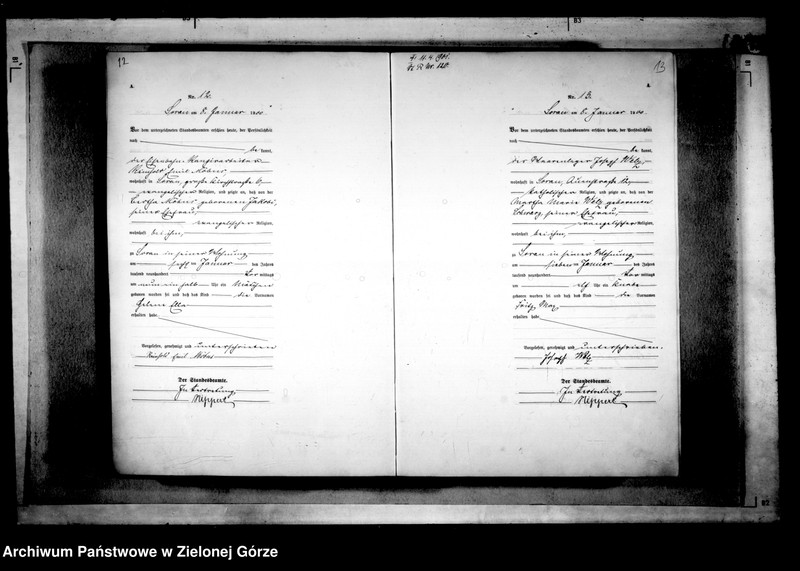 12
A.
Nr. 12.
Sorau am 8. Januar 1900
Vor dem unterzeichneten Standesbeamten erschien heute, der Persönlichkeit
nach
be kannt,
der Eisenbahn Rangirarbeiter
Reinhold Emil Möbus,
wohnhaft in Sorau, große Kirchstraße 6
evangelischer Religion, und zeigte an, daß von der
Bertha Möbus geborenen Jakobi,
seiner Ehefrau,
evangelischer Religion,
wohnhaft bei ihm,
zu Sorau in seiner Wohnung,
am Januar des Jahres
tausend neunhundert Vor mittags
um neun einhalb Uhr ein Mädchen
geboren worden sei und daß das Kind die Vornamen
Helene
erhalten habe.
Vorgelesen, genehmigt und unterschrieben
Reinhold Emil Möbus
Der Standesbeamte.
In Vertretung
Neppert
13
A.
Nr. 13.
Sorau am 8. Januar 1900
Vor dem unterzeichneten Standesbeamten erschien heute, der Persönlichkeit
nach
be kannt,
der Joseph Welz,
wohnhaft in Sorau,
katholischer Religion, und zeigte an, daß von der
Martha Marie Welz geborenen
seiner Ehefrau,
evangelischer Religion,
wohnhaft bei ihm,
zu Sorau in seiner Wohnung,
am sieben Januar des Jahres
tausend neunhundert Vor mittags
um elf Uhr ein Knabe
geboren worden sei und daß das Kind die Vornamen
Fritz Max
erhalten habe.
Vorgelesen, genehmigt und unterschrieben.
Joseph Welz
Der Standesbeamte.
In Vertretung
Neppert
82
Archiwum Państwowe w Zielonej Górze